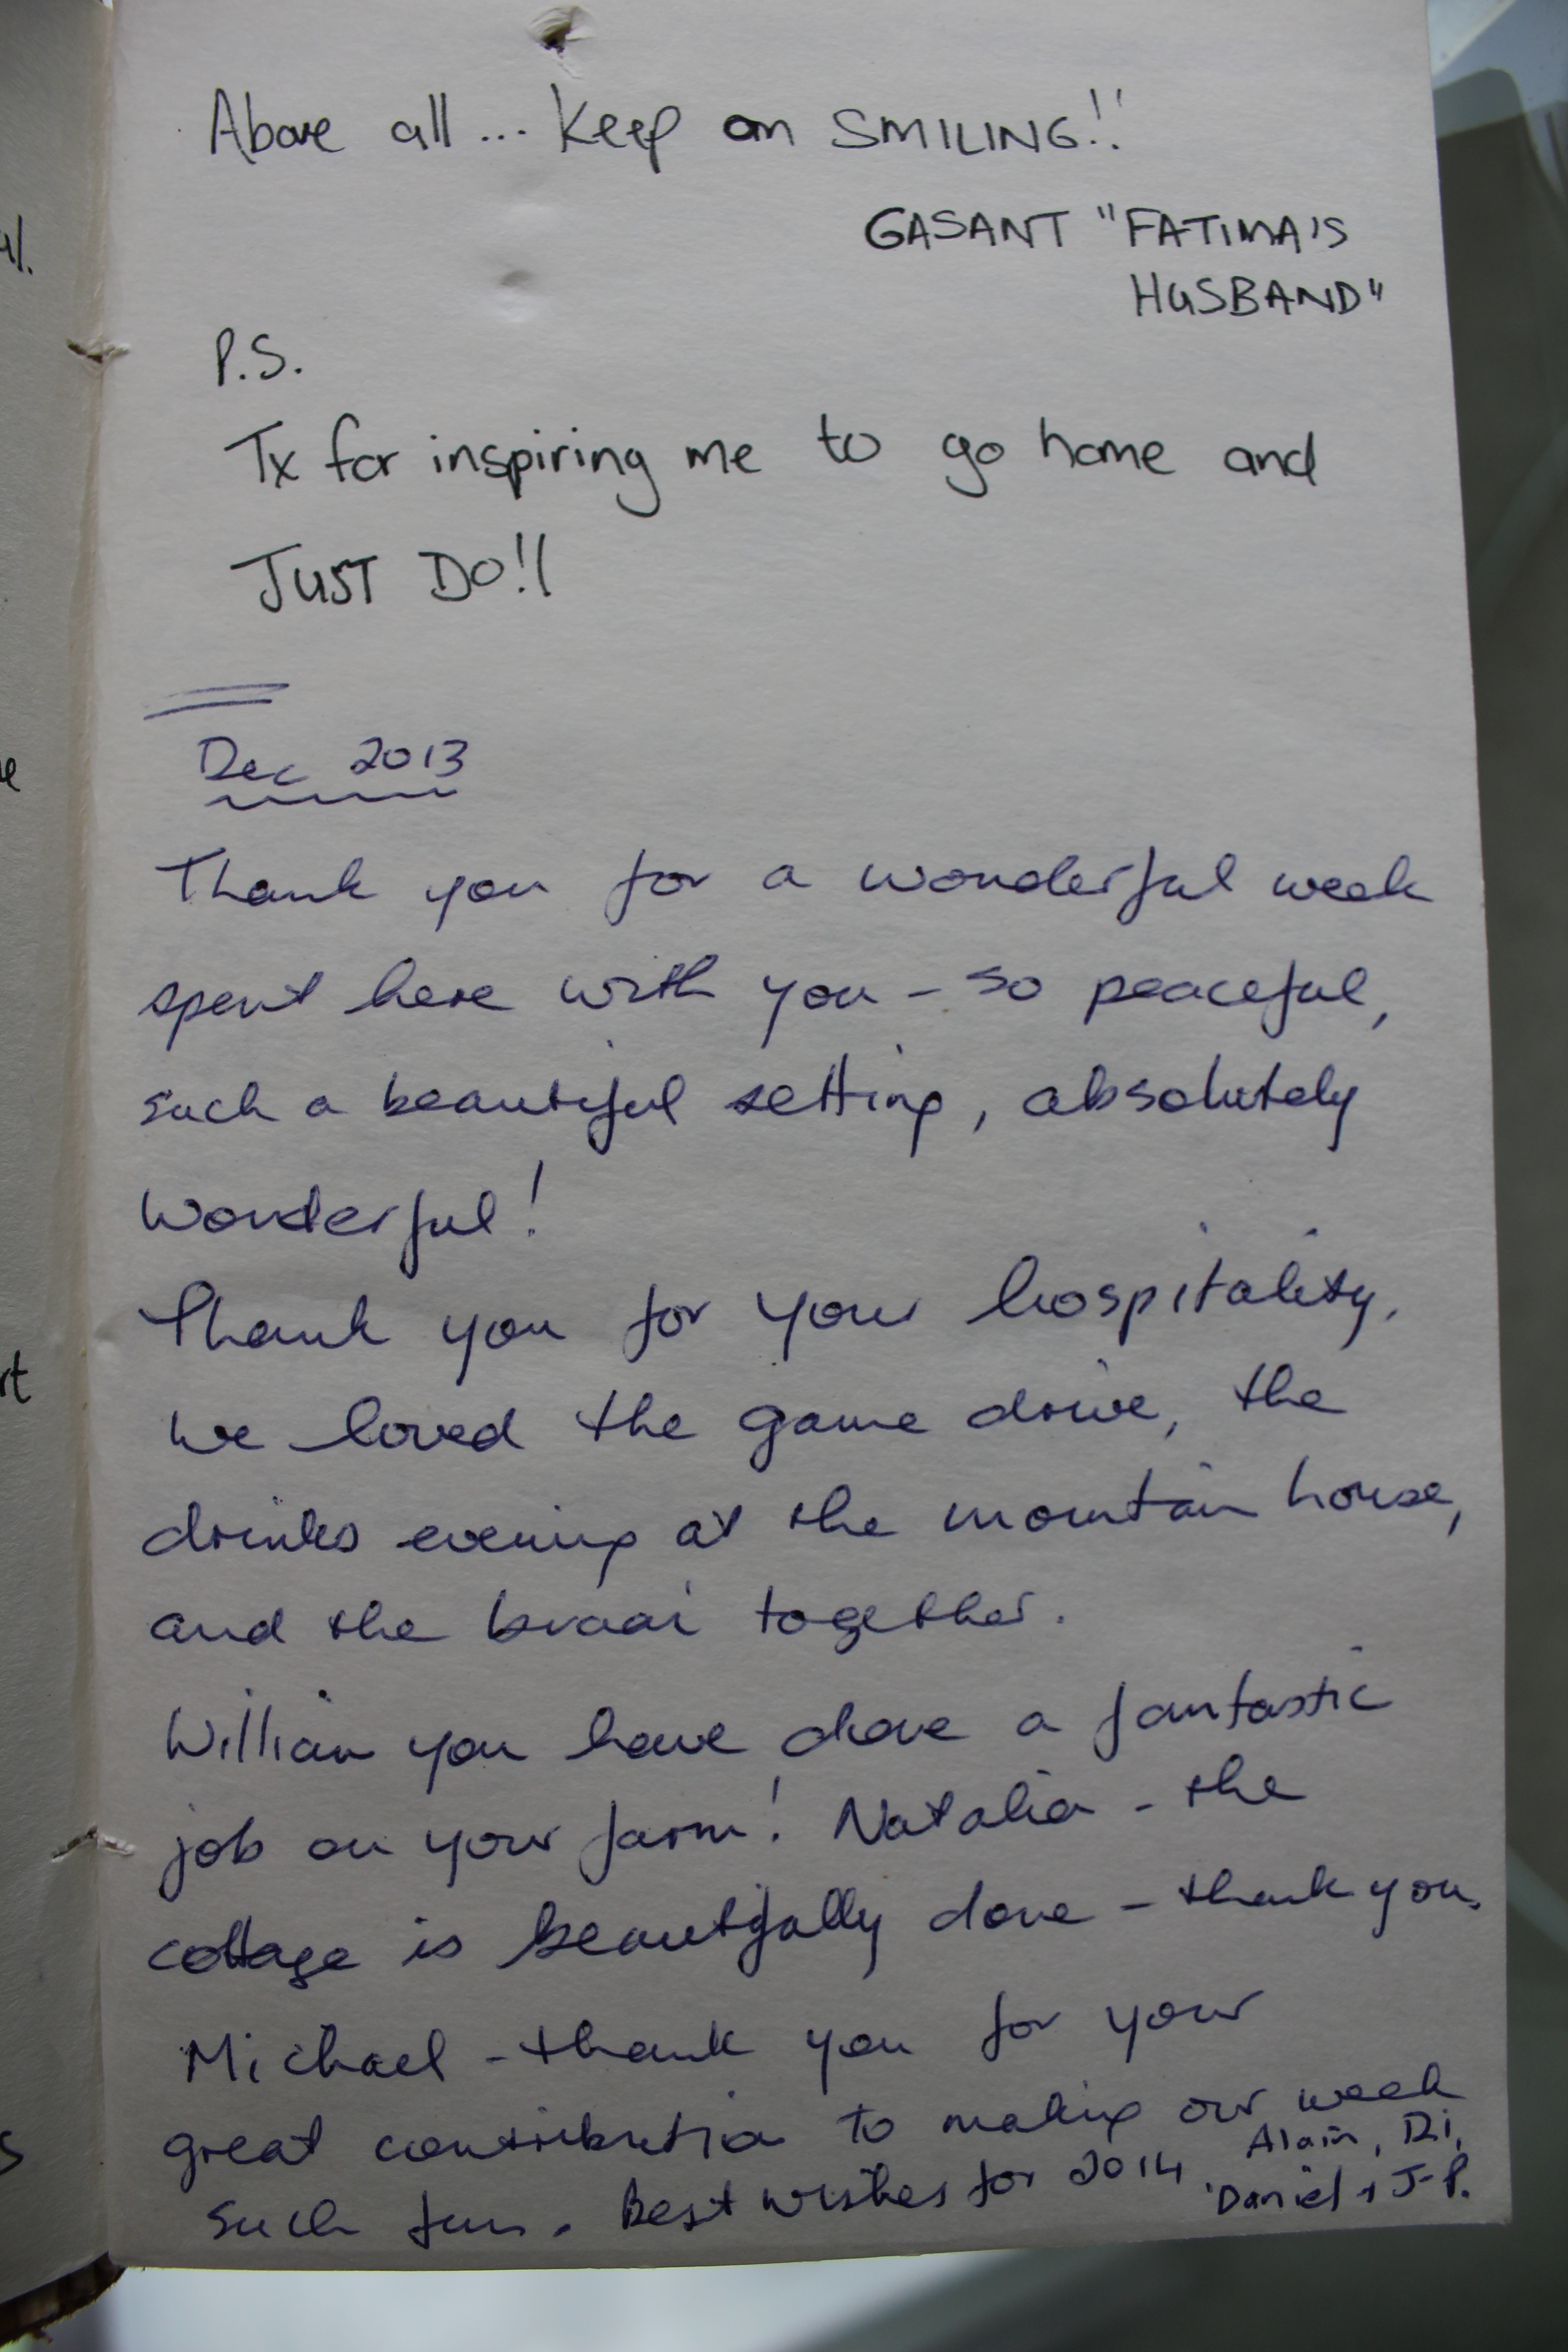 Above all ... Keep on SMILING!!
GASANT "FATIMA'S
HUSBAND"
P.S.
Tx for inspiring me to go home and
JUST DO!!
Dec 2013
Thank you for a wonderful week
spent here with you - so peaceful,
such a beautiful setting, absolutely
wonderful!
Thank you for your hospitality,
we loved the game drive, the
drinks evening at the mountain house,
and the braai together.
William you have done a fantastic
job on your farm! Natalia - the
cottage is beautifully done - thank you.
Michael - thank you for your
great contribution to making our week
such fun. Best wishes for 2014.
Alain, Di,
Daniel + J-P.